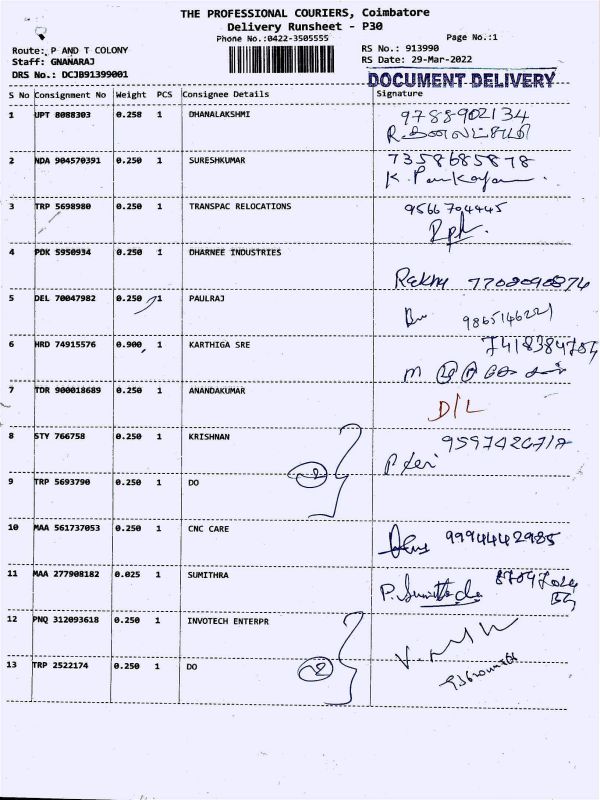 THE PROFESSIONAL COURIERS, Coimbatore
Delivery Runsheet - P30
Phone No.:0422-3505555
Page No.:1
Route: P AND T COLONY
RS No.: 913990
Staff: GNANARAJ
RS Date: 29-Mar-2022
DRS No.: DCJB91399001
DOCUMENT DELIVERY
S No Consignment No Weight PCS Consignee Details Signature
1 UPT 8088303 0.250 1 DHANALAKSHMI 9788902134
R. தனலட்சுமி
2 NDA 904570391 0.250 1 SURESHKUMAR 7358685878
3 TRP 5698980 0.250 1 TRANSPAC RELOCATIONS 9566704445
4 PDK 5950934 0.250 1 DHARNEE INDUSTRIES
Rekha 7708090874
5 DEL 70047982 0.250 1 PAULRAJ
9865146221
6 HRD 74915576 0.900 1 KARTHIGA SRE 7418384704
7 TDR 900018689 0.250 1 ANANDAKUMAR
D/L
8 STY 766758 0.250 1 KRISHNAN
9 TRP 5693790 0.250 1 DO
2
10 MAA 561737053 0.250 1 CNC CARE
9994442985
11 MAA 277908182 0.025 1 SUMITHRA
P. Sumithda
12 PNQ 312093618 0.250 1 INVOTECH ENTERPR
13 TRP 2522174 0.250 1 DO
2